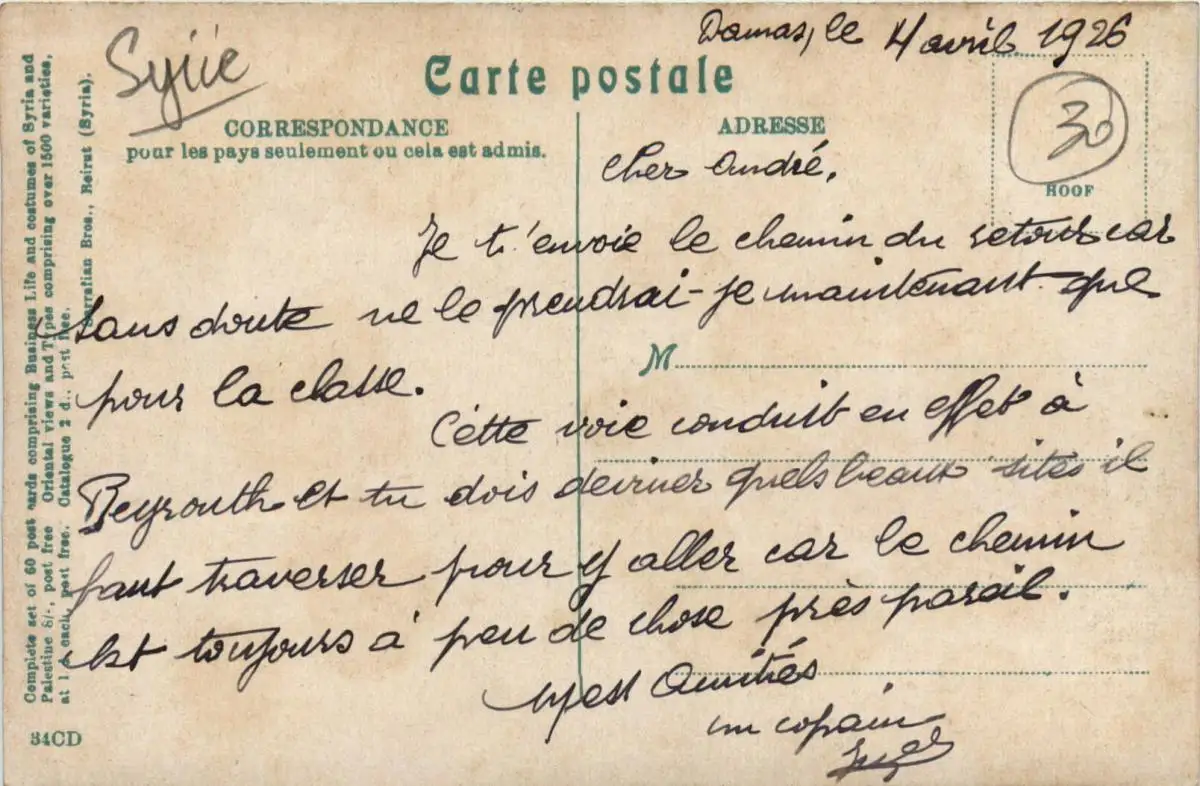 Damas, le 4 avril 1926
Syrie
Carte postale
CORRESPONDANCE
pour les pays seulement ou cela est admis.
ADRESSE
30
HOOF
Cher André,
Je t'envoie le chemin du retour car
sans doute ne le prendrai-je maintenant que
pour la classe.
M
Cette voie conduit en effet à
Beyrouth et tu dois deviner quels beaux sites il
faut traverser pour y aller car le chemin
est toujours à peu de chose près pareil.
Amitiés
un copain
Complete set of 60 post cards comprising Business Life and costumes of Syria and
Palestine 8/-, post free Oriental views and Types comprising over 1500 varieties,
at 1 d. each, post free. Catalogue 2 d., post free.
Sarrafian Bros., Beirut (Syria).
34CD